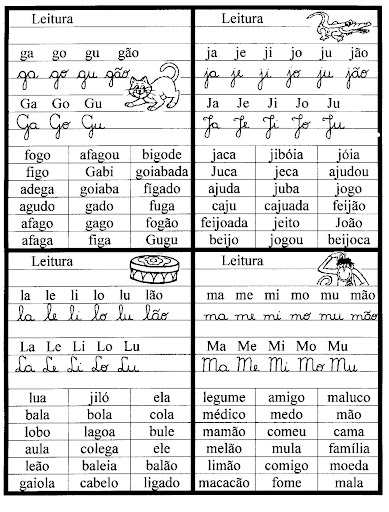 Leitura
ga go gu gão
ga go gu gão
Ga Go Gu
Ga Go Gu
fogo afagou bigode
figo Gabi goiabada
adega goiaba fígado
agudo gado fuga
afago gago fogão
afaga figa Gugu
Leitura
ja je ji jo ju jão
ja je ji jo ju jão
Ja Je Ji Jo Ju
Ja Je Ji Jo Ju
jaca jibóia jóia
Juca jeca ajudou
ajuda juba jogo
caju cajuada feijão
feijoada jeito João
beijo jogou beijoca
Leitura
la le li lo lu lão
la le li lo lu lão
La Le Li Lo Lu
La Le Li Lo Lu
lua jiló ela
bala bola cola
lobo lagoa bule
aula colega ele
leão baleia balão
gaiola cabelo ligado
Leitura
ma me mi mo mu mão
ma me mi mo mu mão
Ma Me Mi Mo Mu
Ma Me Mi Mo Mu
legume amigo maluco
médico medo mão
mamão comeu cama
melão mula família
limão comigo moeda
macacão fome mala